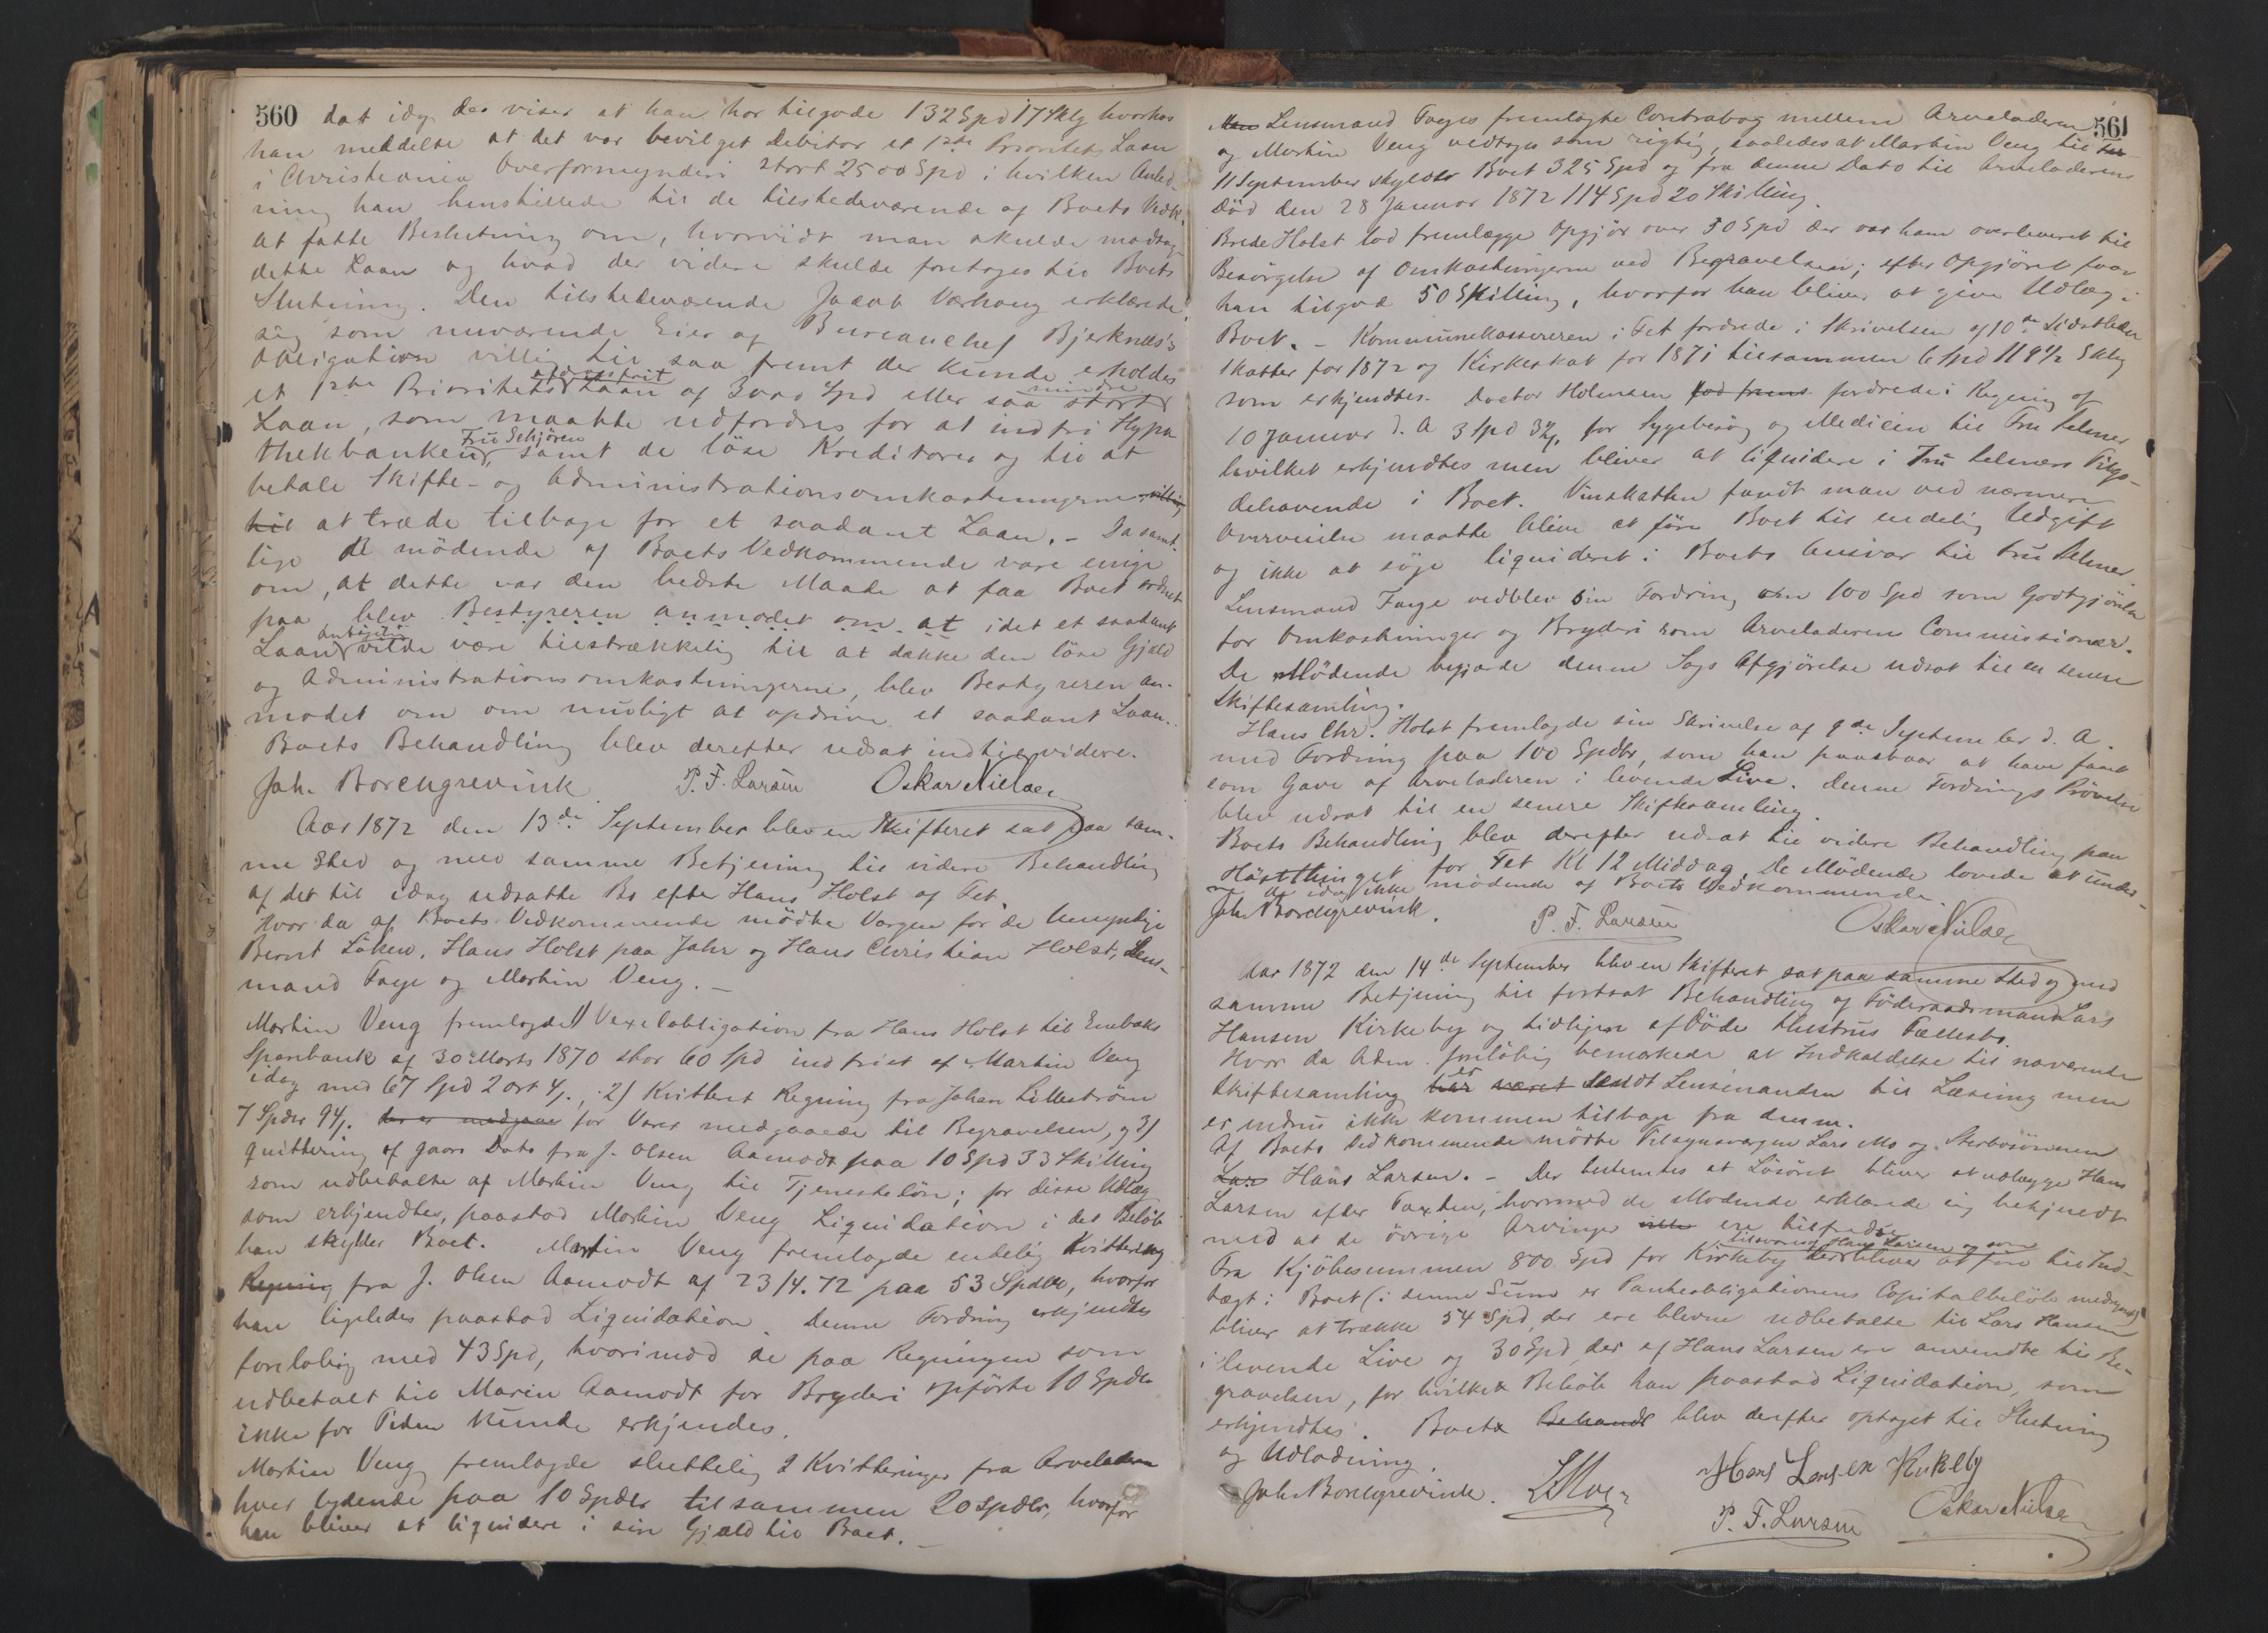 560 dat idag der viser at han har tilgode 132 Spd 17 Sklg hvorhos
han meddelte at det var bevilget Debitor et 1ste Prioritets Laan
i Christiania Overformynderi stort 2500 Spd i hvilken Anled-
ning han henstillede til de tilstedeværende af Boets Vedk.
at fatte Beslutning om, hvorvidt man skulde modtage
dette Laan og hvad der videre skulde foretages til Boets
Slutning. Den tilstedeværende Jacob Værhaug erklærede
sig som nuværende Eier af Bureauchef Bjerknes's
Obligation villig til saa fremt der kunde erholdes
et 1ste Prioritets afdragsfrit Laan af 3000 Spd eller saa mindre stort
Laan, som maatte udfordres for at indfri Hypo
thekbanken, Fru Schjören samt de löse Kreditorer og til at
betale Skifte- og Administrationsomkostningerne villig
til at træde tilbage for et saadant Laan. - Da samt-
lige de mödende af Boets Vedkommende vare enige
om, at dette var den bedste Maade at faa Boet ordnet
paa blev Bestyreren anmodet om at idet et saadant
Laan antagelig vilde være tilstrækkelig til at dække den löse Gjæld
og Administrationsomkostningerne, blev Bestyreren an-
modet om om muligt at opdrive et saadant Laan.
Boets Behandling blev derefter udsat indtil videre.
Joh. Borchgrevink P. F. Larsen Oskar Nielsen
Aar 1872 den 13de September blev en Skifteret sat paa sam-
me Sted og med samme Betjening til videre Behandling
af det til idag udsatte Bo efter Hans Holst af Fet.
Hvor da af Boets Vedkommende mödte Vergen for de Umyndige
Bernt Löken, Hans Holst paa Jahr og Hans Christian Holst, Lens-
mand Faye og Martin Veng. -
Martin Veng fremlagde 1) Vexelobligation fra Hans Holst til Enebaks
Sparebank af 30 Marts 1870 stor 60 Spd indfriet af Martin Veng
idag med 67 Spd 2 ort 4 /., 2) Kvitteret Regning fra Johan Lilleström
7 Spdlr 94 /. der er medgaaet for Varer medgaaede til Begravelsen, og 3)
quittering af gaars Dato fra J. Olsen Aamodt paa 10 Spd 33 Skilling
som udbetalte af Martin Veng til Tjenestelön; for disse Udlæg
som erkjendtes, paastod Martin Veng Liquidation i det Belöb
han skylder Boet. Martin Veng fremlagde endelig Kvittering
Regning fra J. Olsen Aamodt af 23/4.72 paa 53 Spdlr, hvorfor
han ligeledes paastod Liquidation. Denne Fordring erkjendtes
forelöbig med 43 Spd, hvorimod de paa Regningen som
udbetalt til Maren Aamodt for Bryderi opförte 10 Spdlr
ikke for Tiden kunde erkjendes.
Martin Veng fremlagde sluttelig 2 Kvitteringer fra Arveladeren
hver lydende paa 10 Spdlr tilsammen 20 Spdlr, hvorfor
han bliver at liquidere i sin Gjæld til Boet. -
561
Man Lensmand Fayes fremlagte Contrabog mellem Arveladeren
og Martin Veng vedtages som rigtig, saaledes at Martin Veng til
11 September skylder Boet 325 Spd og fra denne Dato til Arveladerens
Död den 28 Januar 1872 114 Spd 20 Skilling.
Brede Holst lod fremlægge Opgjör over 50 Spd der var ham overleveret til
Besörgelse af Omkostningerne ved Begravelsen; efter Opgjöret faar
han tilgode 50 Skilling, hvorfor han bliver at give Udlæg i
Boet. - Kommunekassereren i Fet fordrede i Skrivelse af 10de Sidstleden
Skatter for 1872 og Kirkeskat for 1871 tilsammen 6 Spd 119 1/2 Sklg
som erkjendtes. Doctor Holmsen lod frem fordrede i Regning af
10 Januar d. A 3 Spd 3 /. for Sygebesög og Medicin til Fru Selmer
hvilket erkjendtes men bliver at liquidere i Fru Selmers Tilgo-
dehavende i Boet. Vinskatten fandt man ved nærmere
Overveielse maatte blive at före Boet til endelig Udgift
og ikke at söge liquideret i Boets Ansvar til Fru Selmer.
Lensmand Faye vedblev sin Fordring om 100 Spd som Godtgjörelse
for Omkostninger og Bryderi som Arveladerens Commissionær.
De Mödende begjærede denne Sags Afgjörelse udsat til en senere
Skiftesamling.
Hans Chr. Holst fremlagde sin Skrivelse af 9de September d. A.
med Fordring paa 100 Spdlr, som han paastaar at have faaet
som Gave af Arveladeren i levende Live. Denne Fordrings Prövelse
blev udsat til en senere Skiftesamling.
Boets Behandling blev derefter udsat til videre Behandling paa
Höstthinget for Fet Kl 12 Middag. De Mödende lovede at under-
rette de idag ikke mödende af Boets Vedkommende.
Joh Borchgrevink. P. F. Larsen Oskar Nielsen
Aar 1872 den 14de September blev en Skifteret sat paa samme Sted og med
samme Betjening til fortsat Behandling af Föderaadsmand Lars
Hansen Kirkeby og tidligere afdöde Hustrus Fællesbo.
Hvor da Adm. forelöbig bemærkede at Indkaldelse til nærværende
Skiftesamling har været er sendt Lensmanden til Læsning men
er endnu ikke kommen tilbage fra denne.
Af Boets Vedkommende mödte Tilsynsværgen Lars Mo og Sterbosönnen
Lars Hans Larsen. - Der bestemtes at Lösöret bliver at udlægge Hans
Larsen efter Taxten, hvormed de Mödende erklærede sig bekjendt
med at de övrige Arvinger ere tilfreds.
Fra Kjöbesummen 800 Spd for Kirkeby tilsvares Hans Larsen og som der bliver at före til Ind-
tægt i Boet (i denne Sum er Panteobligationens Capitalbelöb medregnet)
bliver at trække 54 Spd, der ere blevne udbetalte til Lars Hansen
i levende Live og 30 Spd, der af Hans Larsen ere anvendte til Be-
gravelsen, for hvilket Belöb han paastod Liquidation, som
erkjendtes. Boets Behandl blev derefter optaget til Slutning
og Udlodning.
Joh. Borchgrevink. LMoe Hans Larsen Kirkeby
P. F. Larsen Oskar Nielsen